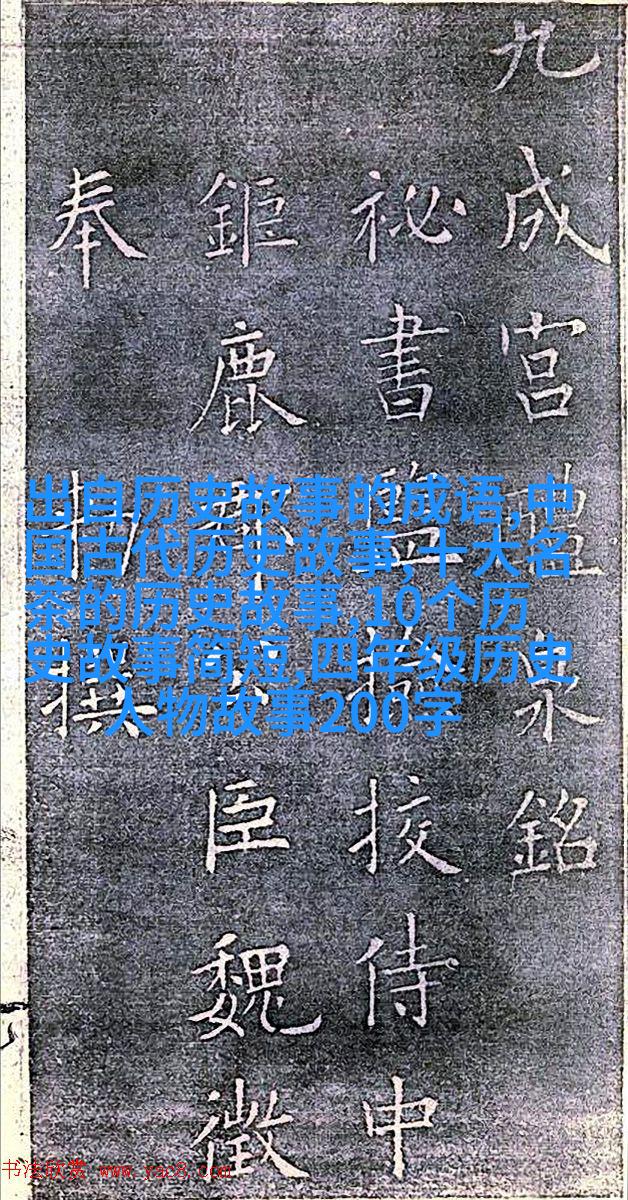 九成宮醴泉銘
祕書監挍侍中
鉅鹿郡公臣魏徵
奉勑撰
出自历史故事的成语,中
国古代历史故事,十大名
茶的历史故事,10个历
史故事简短,四年级历史
人物故事200字
书法欣赏 www.yac8.com